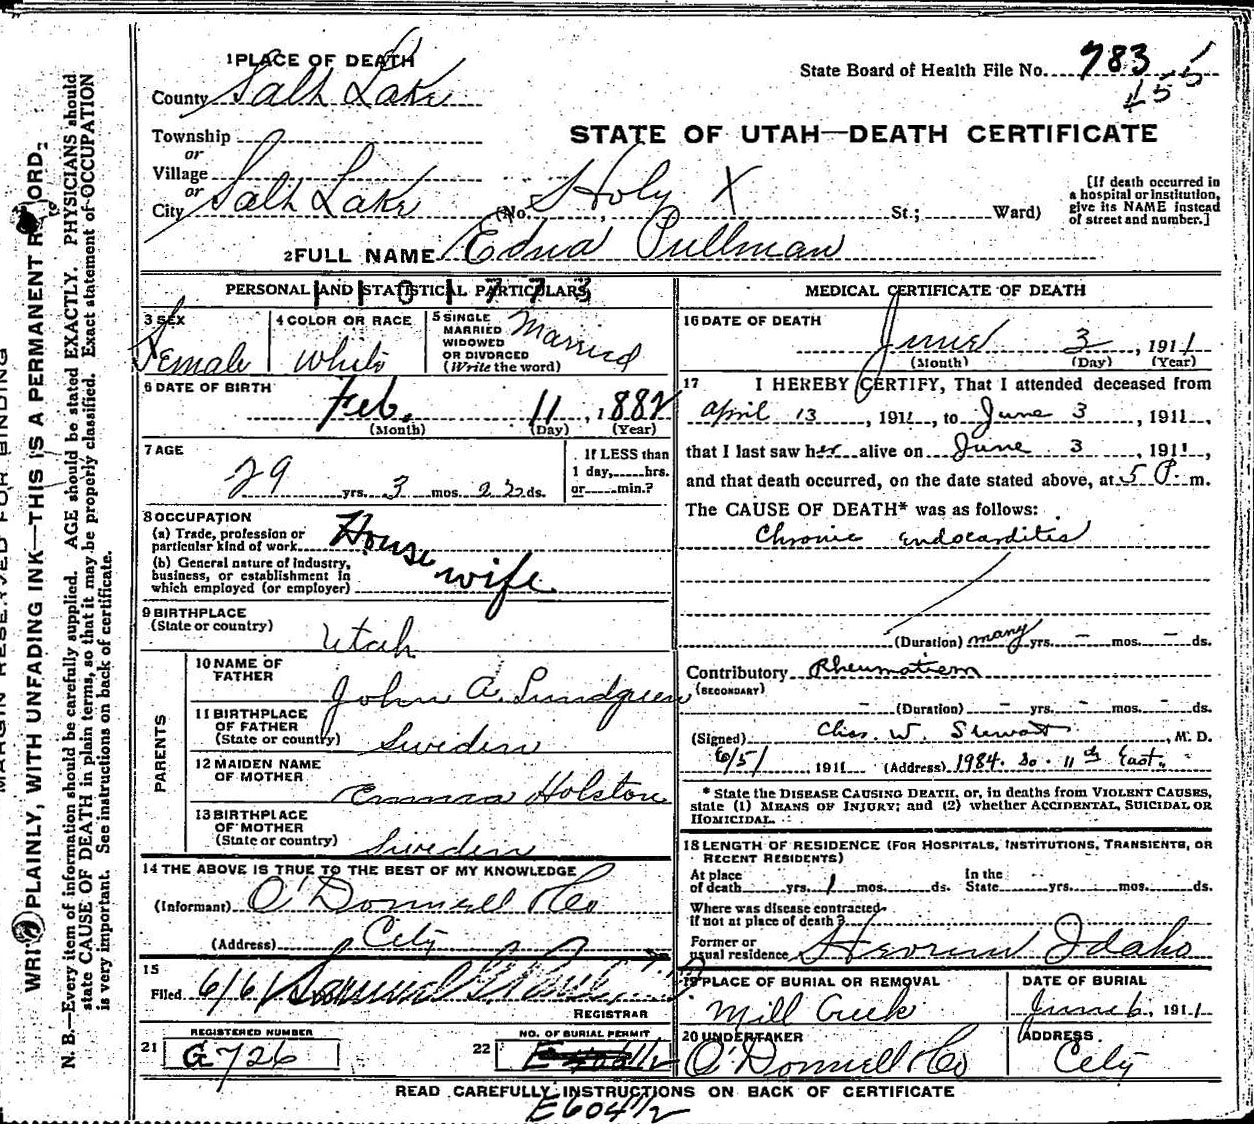 1 PLACE OF DEATH
County Salt Lake
State Board of Health File No. 783
455
Township
or
Village
or
City Salt Lake
STATE OF UTAH—DEATH CERTIFICATE
(No. Holy X St.; Ward)
[If death occurred in
a hospital or institution,
give its NAME instead
of street and number.]
2 FULL NAME Edna Pullman
PERSONAL AND STATISTICAL PARTICULARS
1101773
3 SEX
Female
4 COLOR OR RACE
White
5 SINGLE
MARRIED
WIDOWED
OR DIVORCED
(Write the word)
Married
6 DATE OF BIRTH
Feb. 11, 1882
(Month) (Day) (Year)
7 AGE
29 yrs. 3 mos. 23 ds.
If LESS than
1 day, hrs.
or min.?
8 OCCUPATION
(a) Trade, profession or
particular kind of work
(b) General nature of industry,
business, or establishment in
which employed (or employer)
House
wife
9 BIRTHPLACE
(State or country)
Utah
PARENTS
10 NAME OF
FATHER
John A. Lundgreen
11 BIRTHPLACE
OF FATHER
(State or country)
Sweden
12 MAIDEN NAME
OF MOTHER
Emma Holston
13 BIRTHPLACE
OF MOTHER
(State or country)
Sweden
14 THE ABOVE IS TRUE TO THE BEST OF MY KNOWLEDGE
(Informant) O'Donnell & Co
(Address) City
15
Filed 6/6/ Samuel G.
REGISTRAR
REGISTERED NUMBER
21 G726
NO. OF BURIAL PERMIT
22
MEDICAL CERTIFICATE OF DEATH
16 DATE OF DEATH
June 3, 1911
(Month) (Day) (Year)
17 I HEREBY CERTIFY, That I attended deceased from
April 13, 1911, to June 3, 1911,
that I last saw her alive on June 3, 1911,
and that death occurred, on the date stated above, at 5 P. m.
The CAUSE OF DEATH* was as follows:
Chronic endocarditis
(Duration) many yrs. - mos. - ds.
Contributory Rheumatism
(SECONDARY)
- (Duration) - yrs. - mos. - ds.
(Signed) Chas. W. Stewart, M. D.
6/5/, 1911 (Address) 1984. So. 11th East.
* State the DISEASE CAUSING DEATH, or, in deaths from VIOLENT CAUSES,
state (1) MEANS OF INJURY; and (2) whether ACCIDENTAL, SUICIDAL OR
HOMICIDAL.
18 LENGTH OF RESIDENCE (FOR HOSPITALS, INSTITUTIONS, TRANSIENTS, OR
RECENT RESIDENTS)
At place
of death yrs. 1 mos. ds.
In the
State yrs. mos. ds.
Where was disease contracted
if not at place of death?
Former or
usual residence Idaho
19 PLACE OF BURIAL OR REMOVAL
Mill Creek
DATE OF BURIAL
June 6, 1911
20 UNDERTAKER
O'Donnell & Co
ADDRESS
City
READ CAREFULLY INSTRUCTIONS ON BACK OF CERTIFICATE
E604 1/2
MARGIN RESERVED FOR BINDING
WRITE PLAINLY, WITH UNFADING INK—THIS IS A PERMANENT RECORD.
N. B.—Every item of information should be carefully supplied. AGE should be stated EXACTLY. PHYSICIANS should
state CAUSE OF DEATH in plain terms, so that it may be properly classified. Exact statement of OCCUPATION
is very important. See instructions on back of certificate.